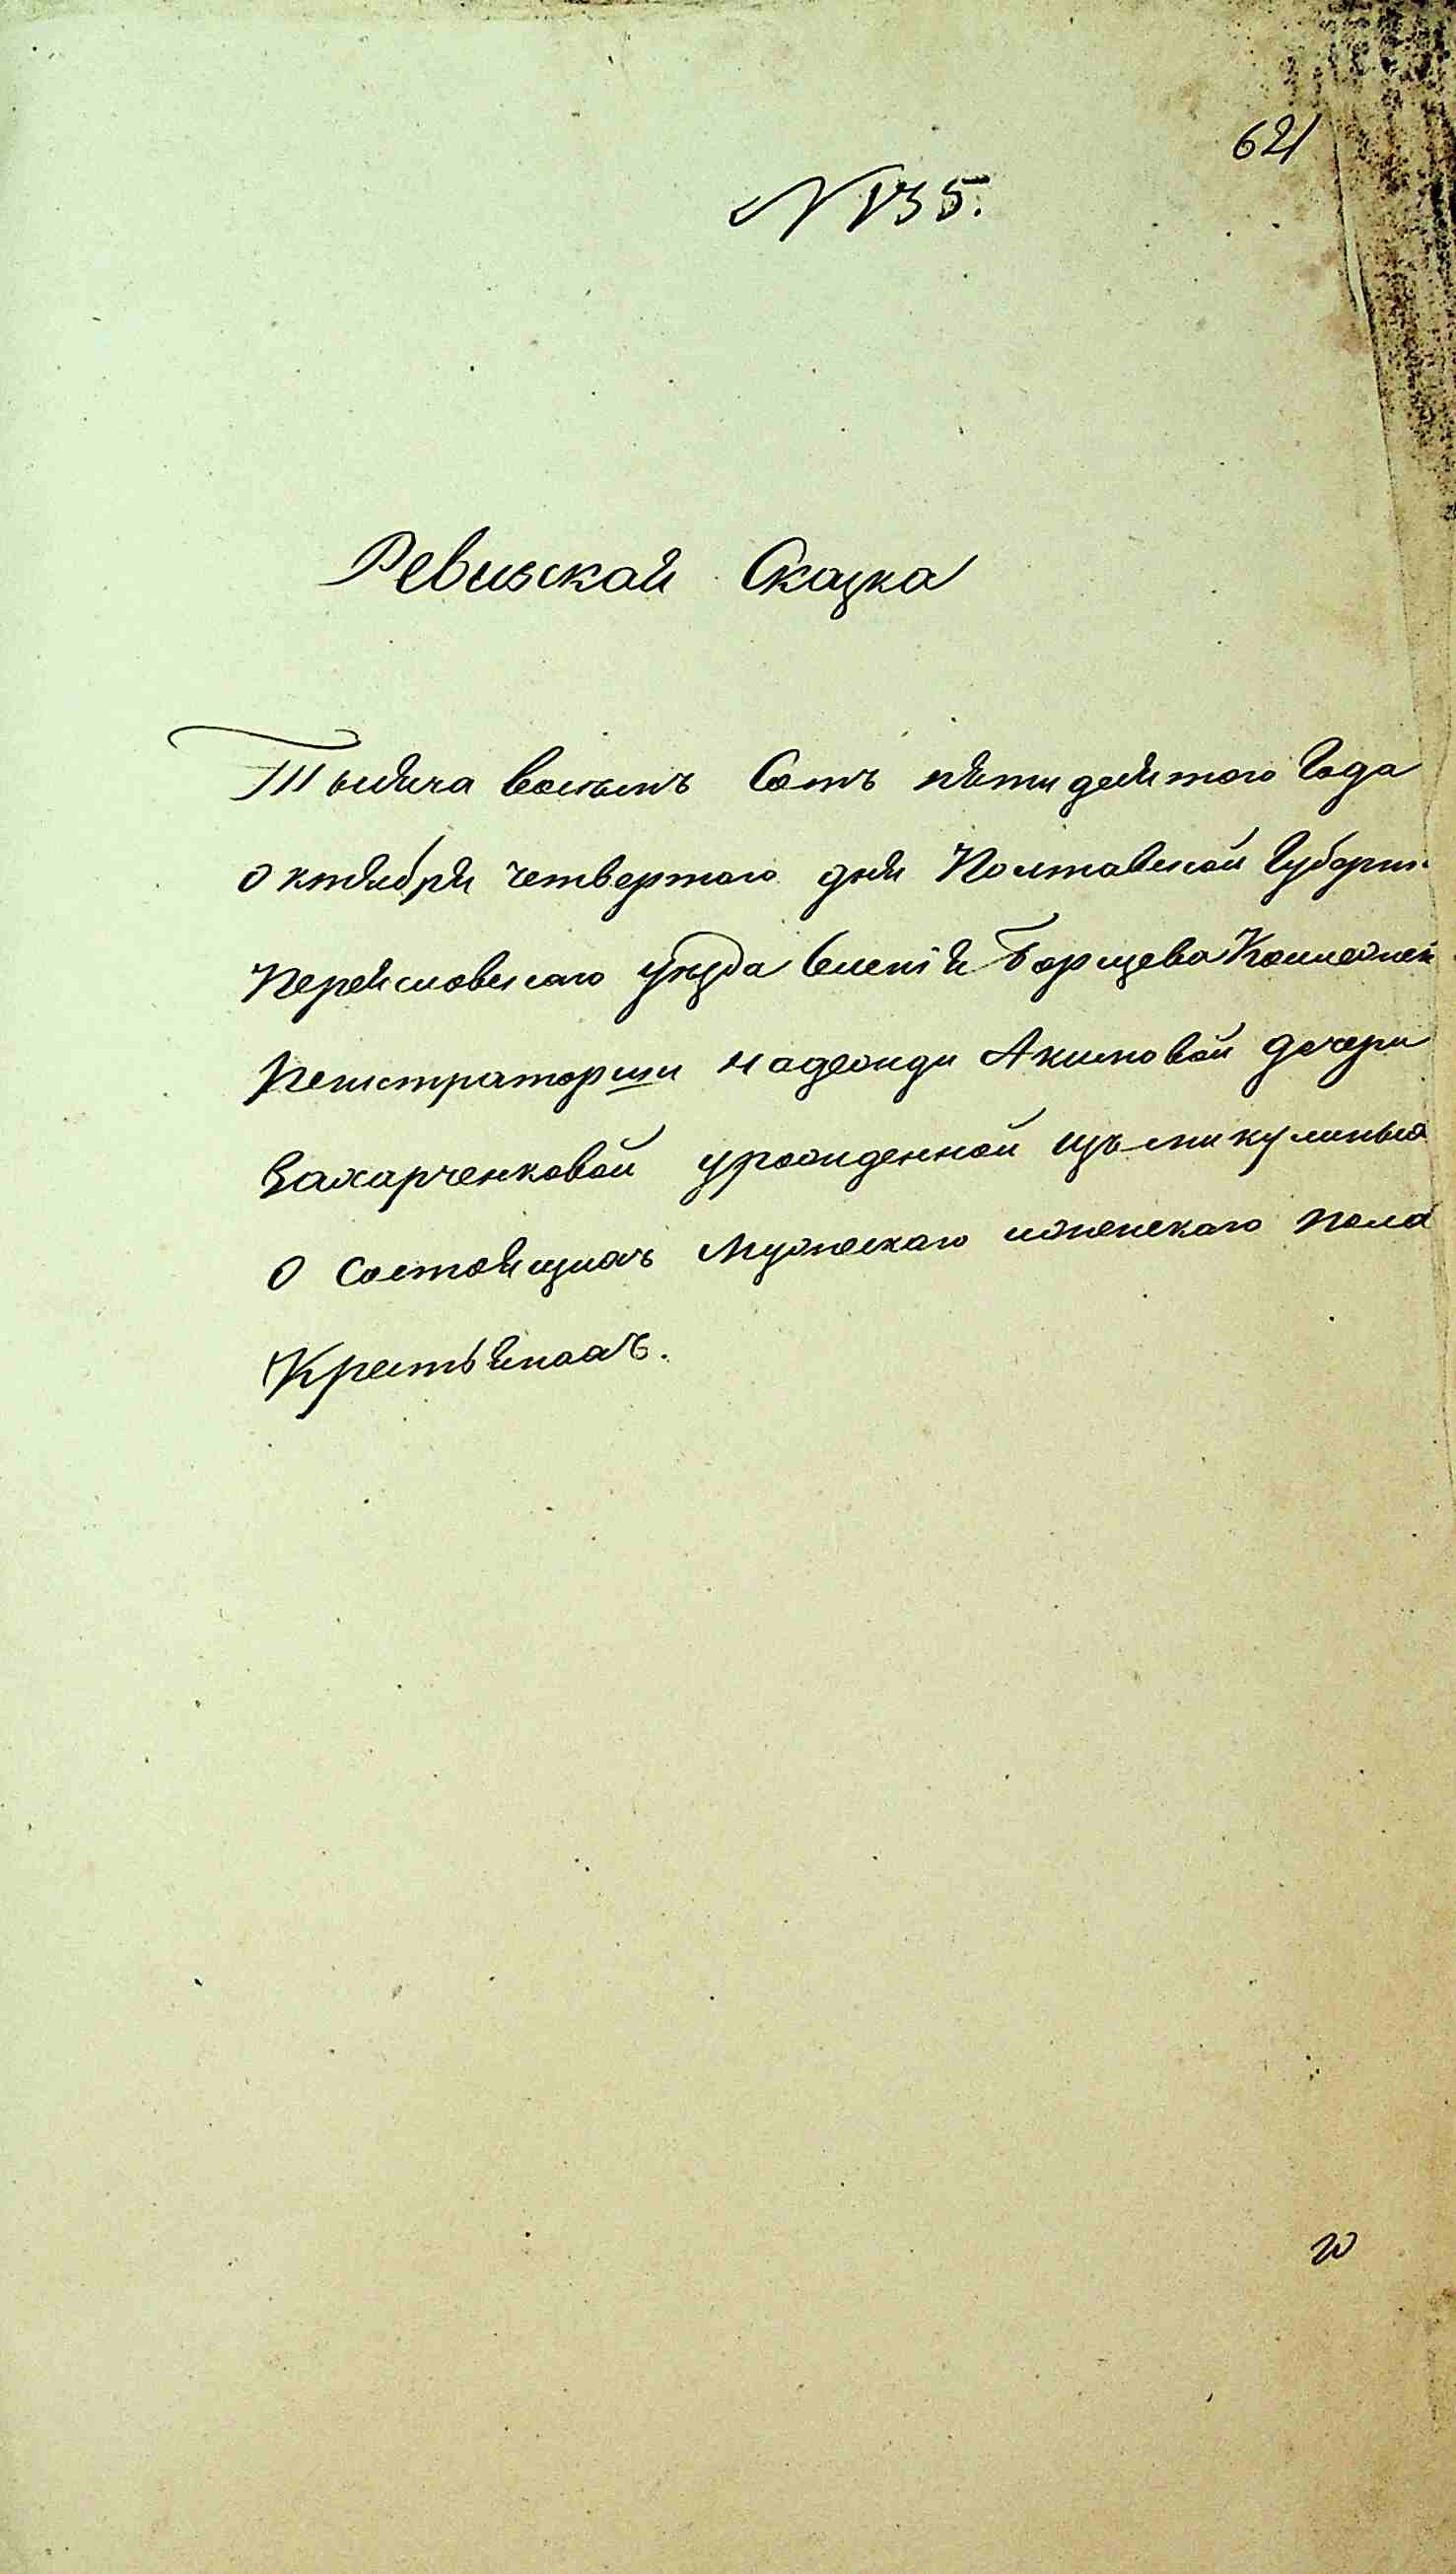 621
№ 135.
Ревизская Сказка
Тысяча восемъ Сотъ пятидесятого Года
октября четвертого дня Полтавской Губерни
Переясловскаго уезда Селенія Борщева Коллежск
Регистраторши надежди Акимовой дочери
Захарченковой урожденной изъ микулиныхъ
О состоящихъ Мужескаго иженскаго пола
Крестьянахъ.